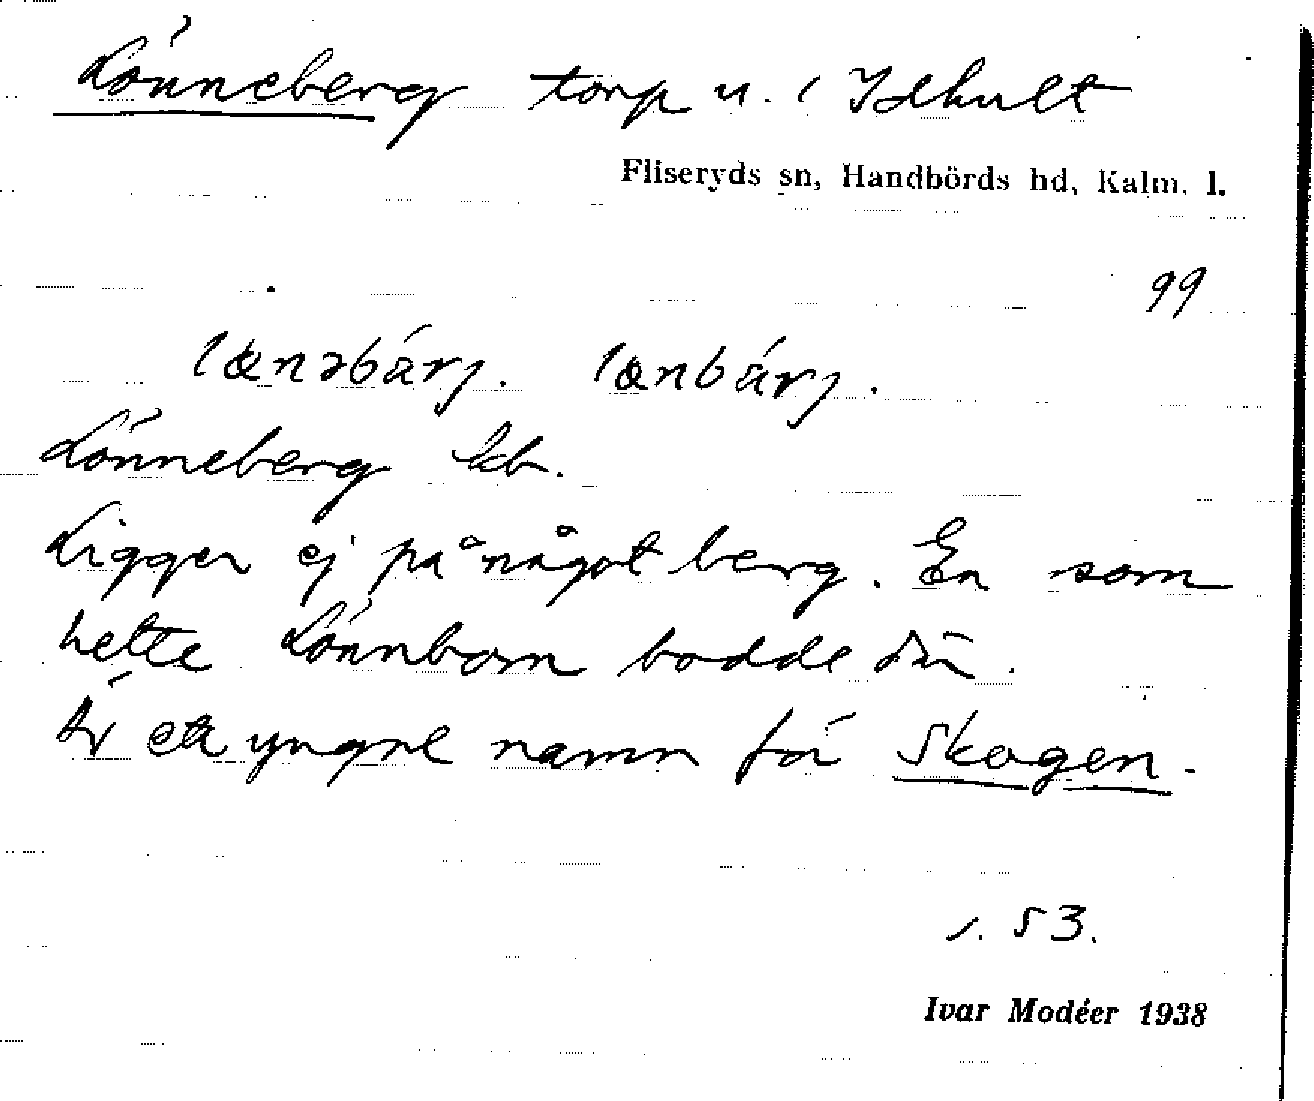 Lönneberg torp u. 1 Idhult
Fliseryds sn, Handbörds hd, Kalm. l.
99
lænəbárj. lænbárj.
Lönneberg kb.
Ligger ej på något berg. En som
hette Lönnbom bodde där.
Är ett yngre namn för Skogen.
1. 53.
Ivar Modéer 1938